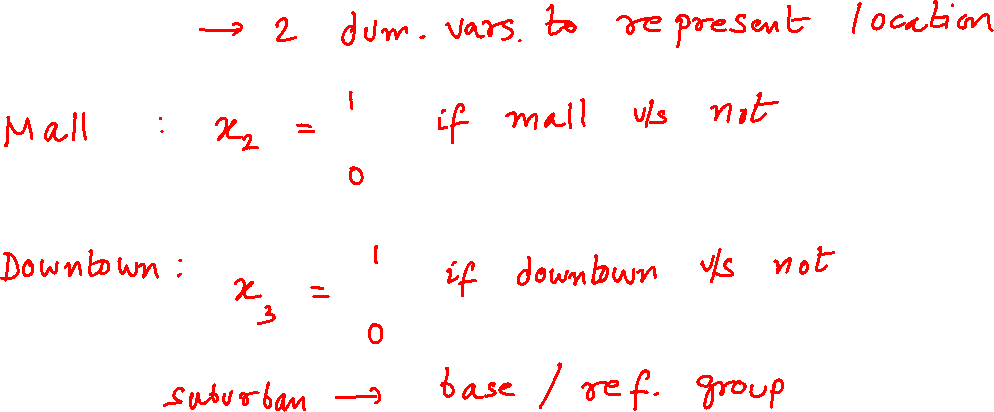 → 2 dum. vars. to represent location
Mall : x₂ = 1 if mall v/s not
0
Downtown : x₃ = 1 if downtown v/s not
0
suburban → base / ref. group